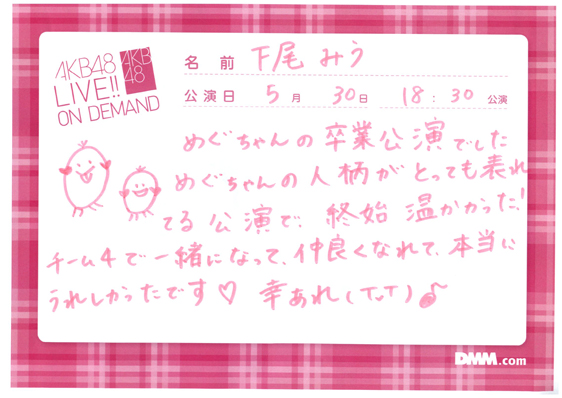 AKB48
LIVE!!
ON DEMAND
AKB
48
名前 下尾みう
公演日 5月 30日 18:30 公演
めぐちゃんの卒業公演でした
めぐちゃんの人柄がとっても表れ
てる公演で、終始 温かかった!
チーム4で一緒になって、仲良くなれて、本当に
うれしかったです♡ 幸あれ(TvT)♪
DMM.com